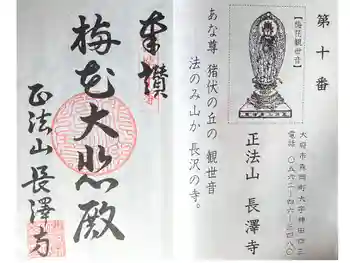 第十番
【梅花観世音】
大府市森岡町大字神田四三
電話 〇五六二-四六-三四八〇
正法山 長澤寺
あな尊 猪伏の丘の 観世音
法のみ山か 長沢の寺。
奉讃
梅花大悲殿
正法山 長澤寺